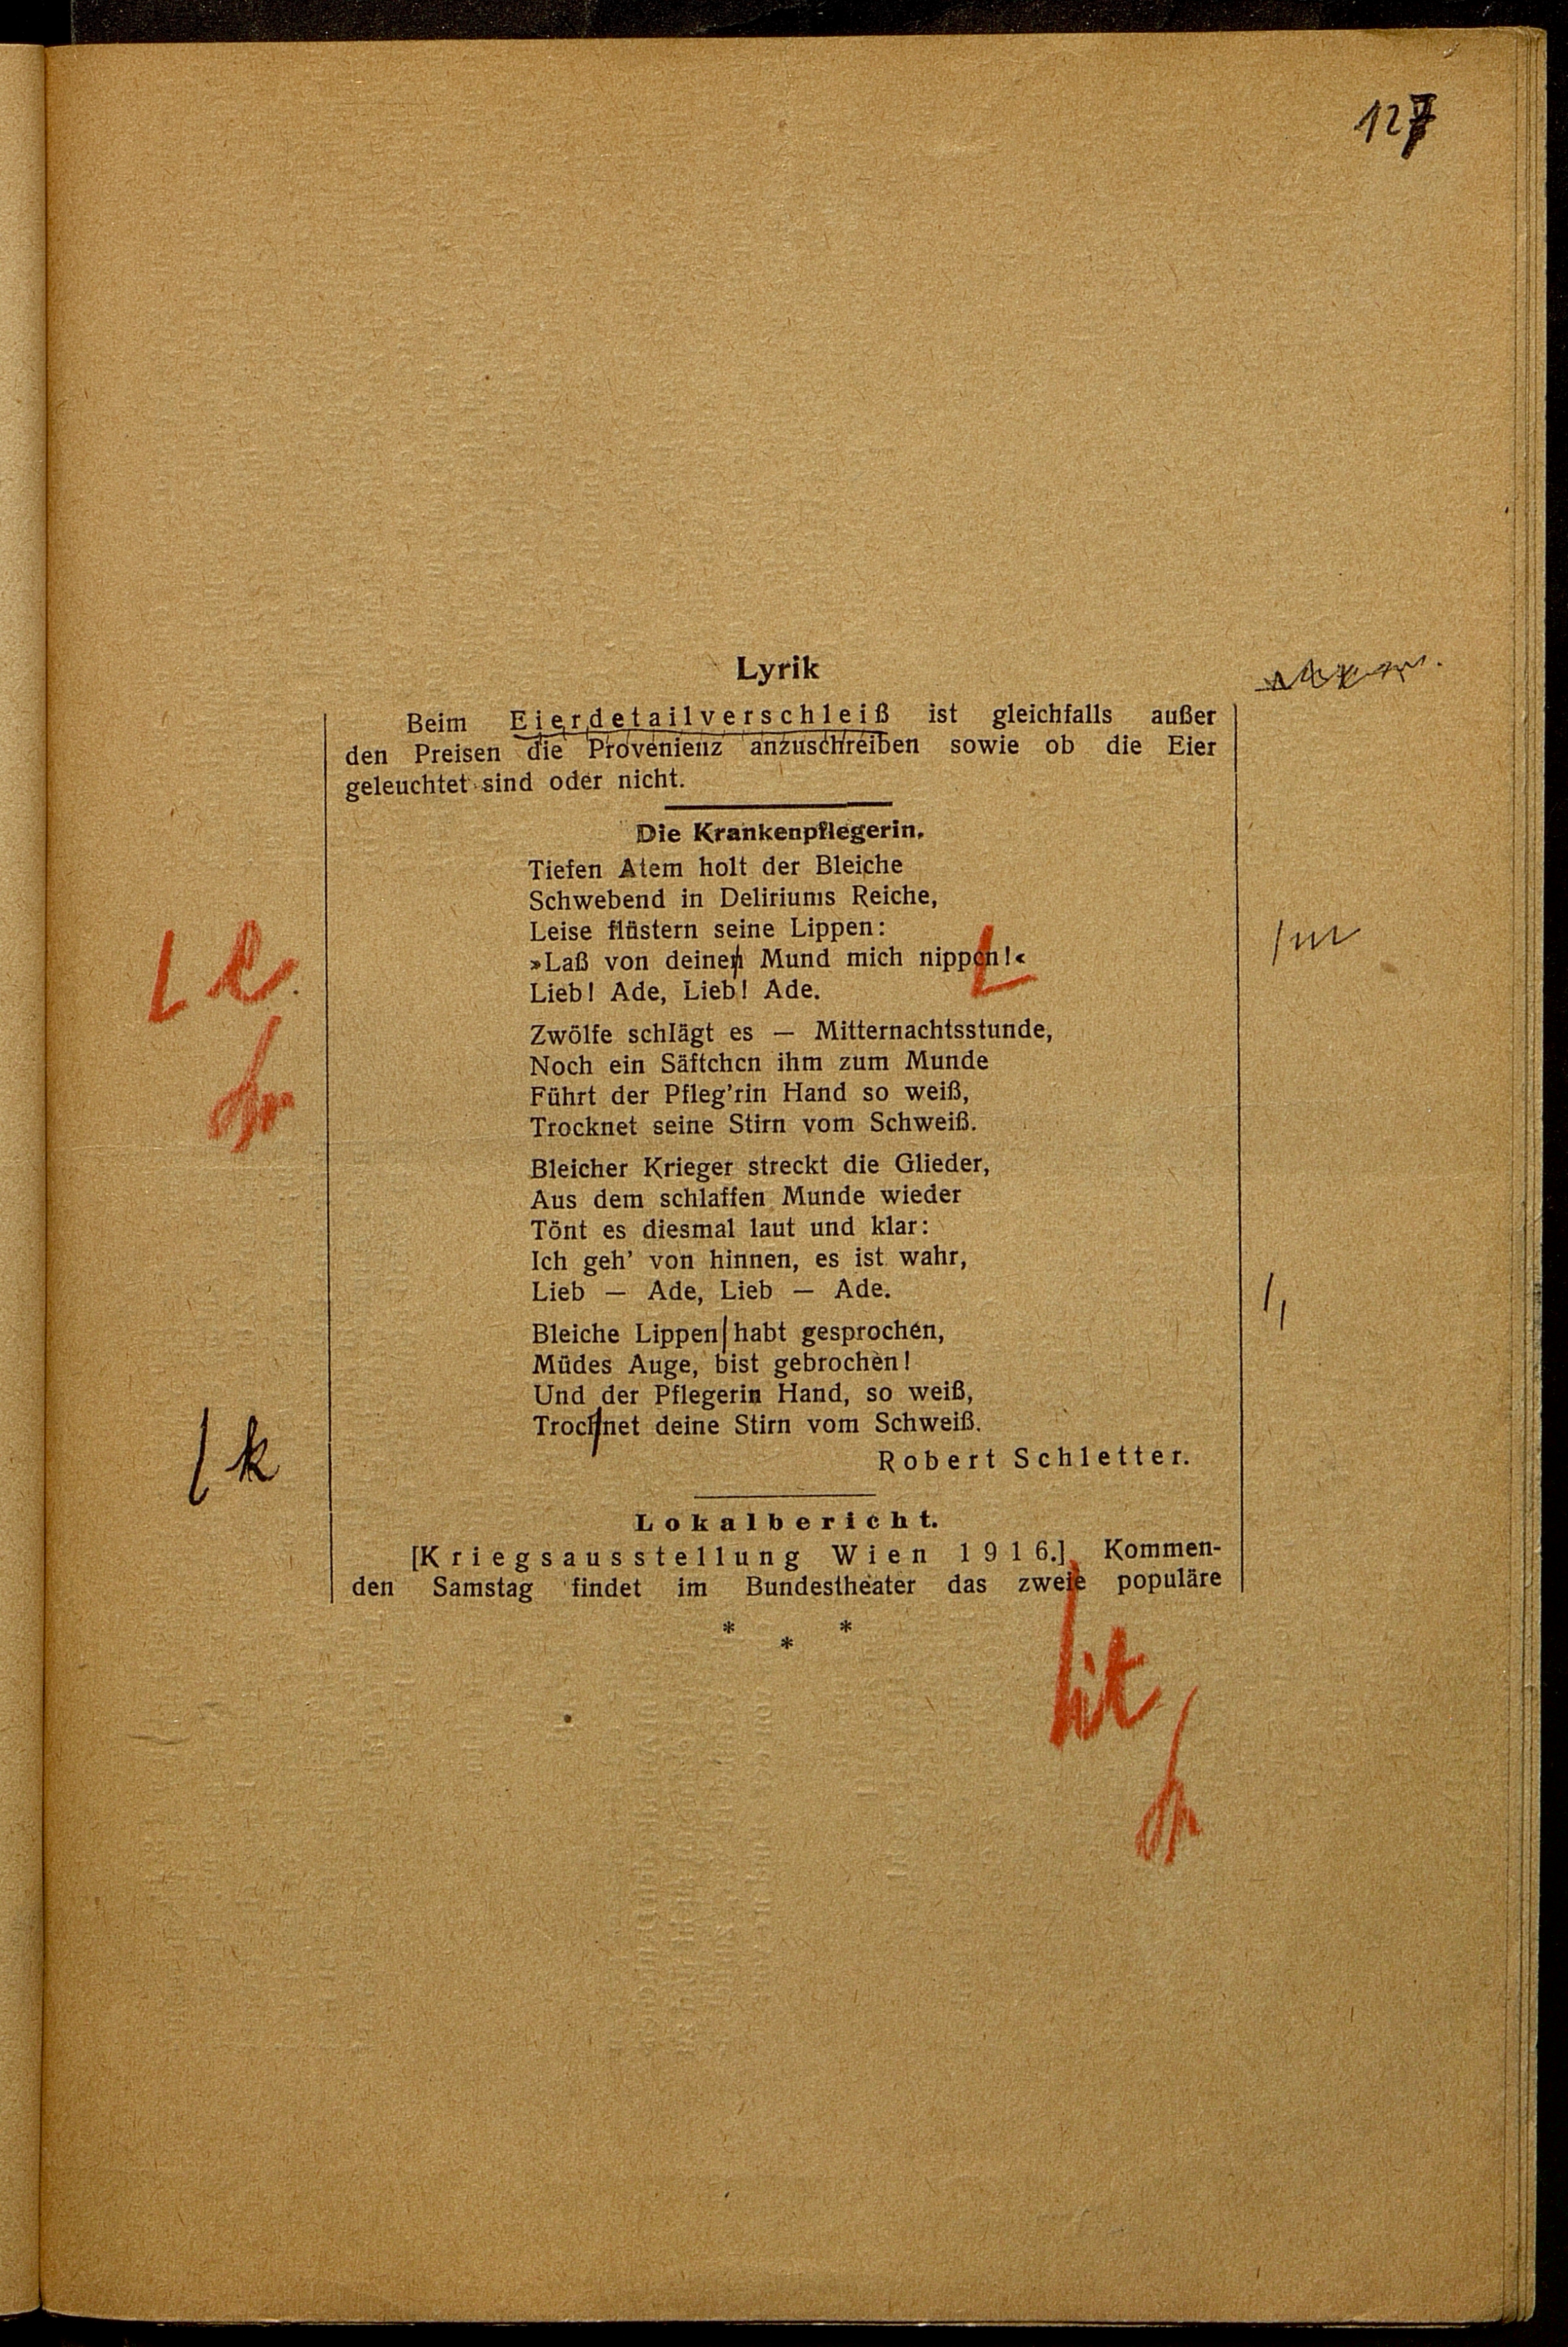 127
Lyrik
Beim Eierdetailverschleiß ist gleichfalls außer
den Preisen die Provenienz anzuschreiben sowie ob die Eier
geleuchtet sind oder nicht.
Die Krankenpflegerin.
Tiefen Atem holt der Bleiche
Schwebend in Deliriums Reiche,
Leise flüstern seine Lippen:
»Laß von deinen Mund mich nippen!«
m
e
Lieb! Ade, Lieb! Ade.
Zwölfe schlägt es — Mitternachtsstunde,
Noch ein Säftchen ihm zum Munde
Führt der Pfleg'rin Hand so weiß,
Trocknet seine Stirn vom Schweiß.
Bleicher Krieger streckt die Glieder,
Aus dem schlaffen Munde wieder
Tönt es diesmal laut und klar:
Ich geh' von hinnen, es ist wahr,
Lieb — Ade, Lieb — Ade.
Bleiche Lippen habt gesprochen,
,
Müdes Auge, bist gebrochen!
Und der Pflegerin Hand, so weiß,
Trochnet deine Stirn vom Schweiß.
k
Robert Schletter.
Lokalbericht.
[Kriegsausstellung Wien 1916.] Kommen-
den Samstag findet im Bundestheater das zweie populäre
* * *
it